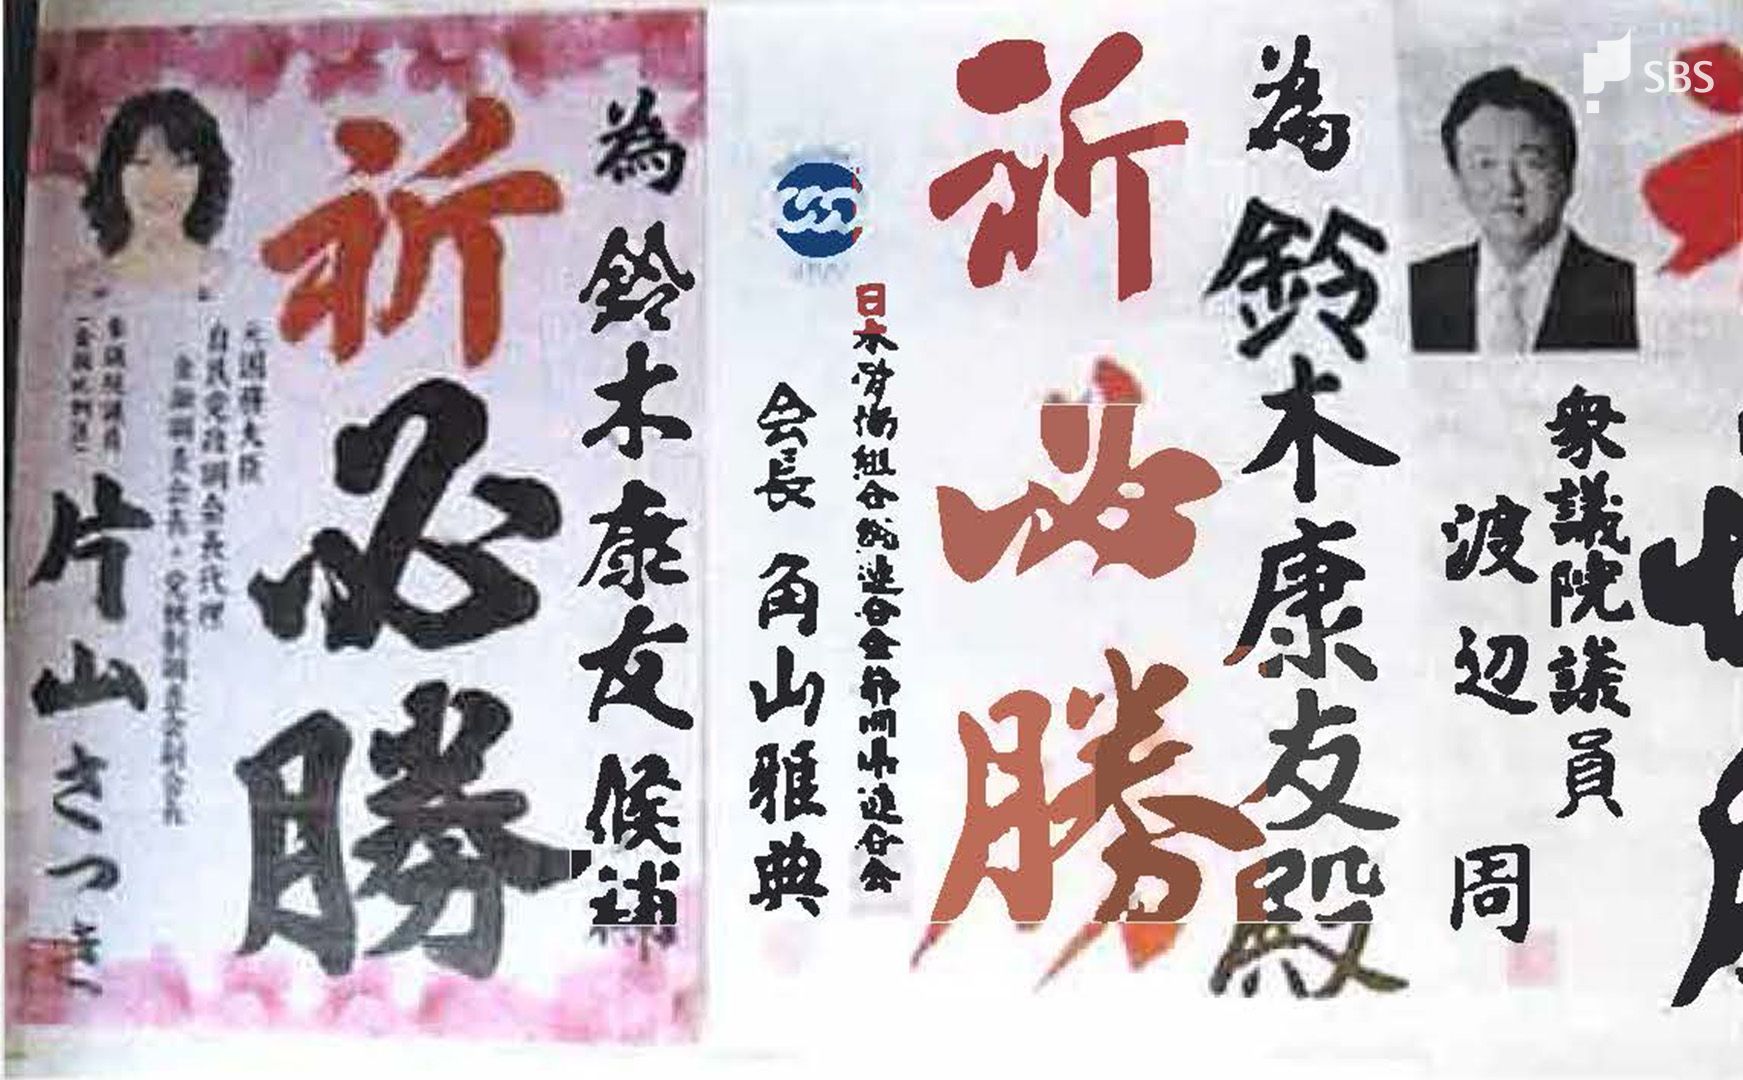 為 鈴木康友候補
祈必勝
元国務大臣
自民党政調会長代理
金融調査会長・党税制調査会副会長
参議院議員
(全国比例区)
片山さつき
為 鈴木康友殿
祈必勝
会長 角山雅典
衆議院議員
渡辺 周
SBS